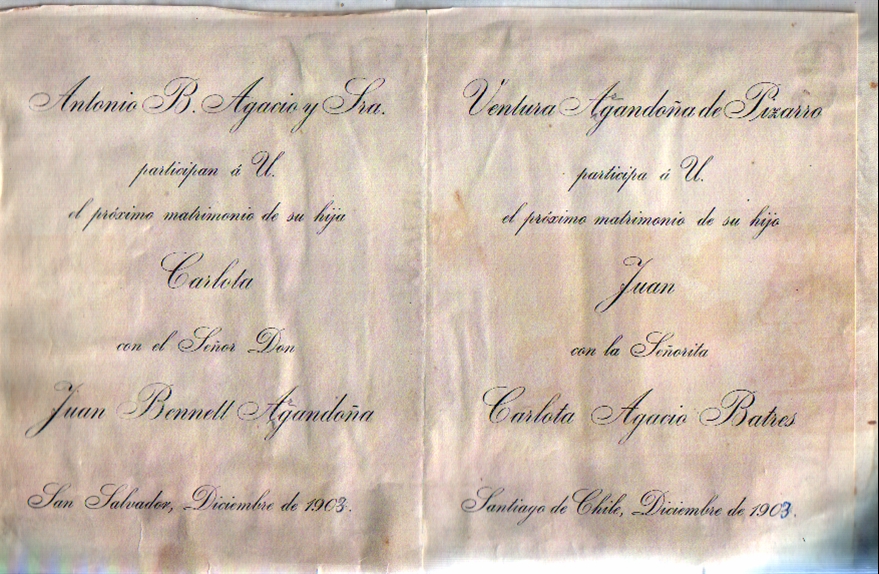 Antonio B. Agacio y Sra.
participan á U.
el próximo matrimonio de su hija
Carlota
con el Señor Don
Juan Bennett Agandoña
San Salvador, Diciembre de 1903.
Ventura Agandoña de Pizarro
participa á U.
el próximo matrimonio de su hijo
Juan
con la Señorita
Carlota Agacio Batres
Santiago de Chile, Diciembre de 1903.